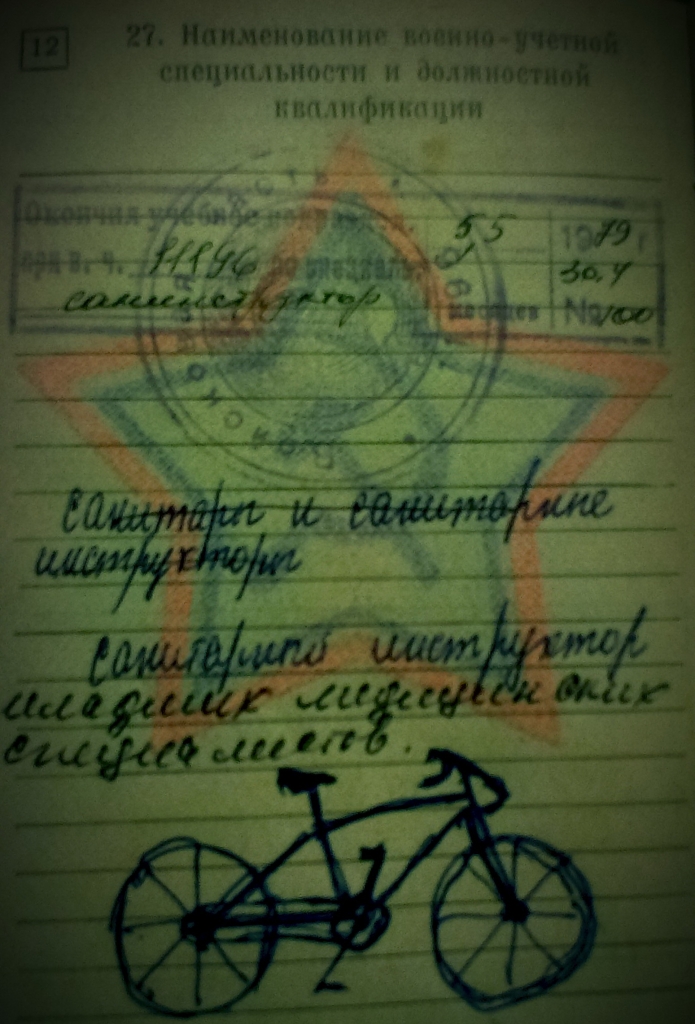 12
27. Наименование военно-учетной
специальности и должностной
квалификации
Окончил учебное 55 1979 г
при в. ч. 11196 по специаль 30.4
санинструктор месяцев № 100
санитары и санитарные
инструкторы
санитарный инструктор
младших медицинских
специалистов.